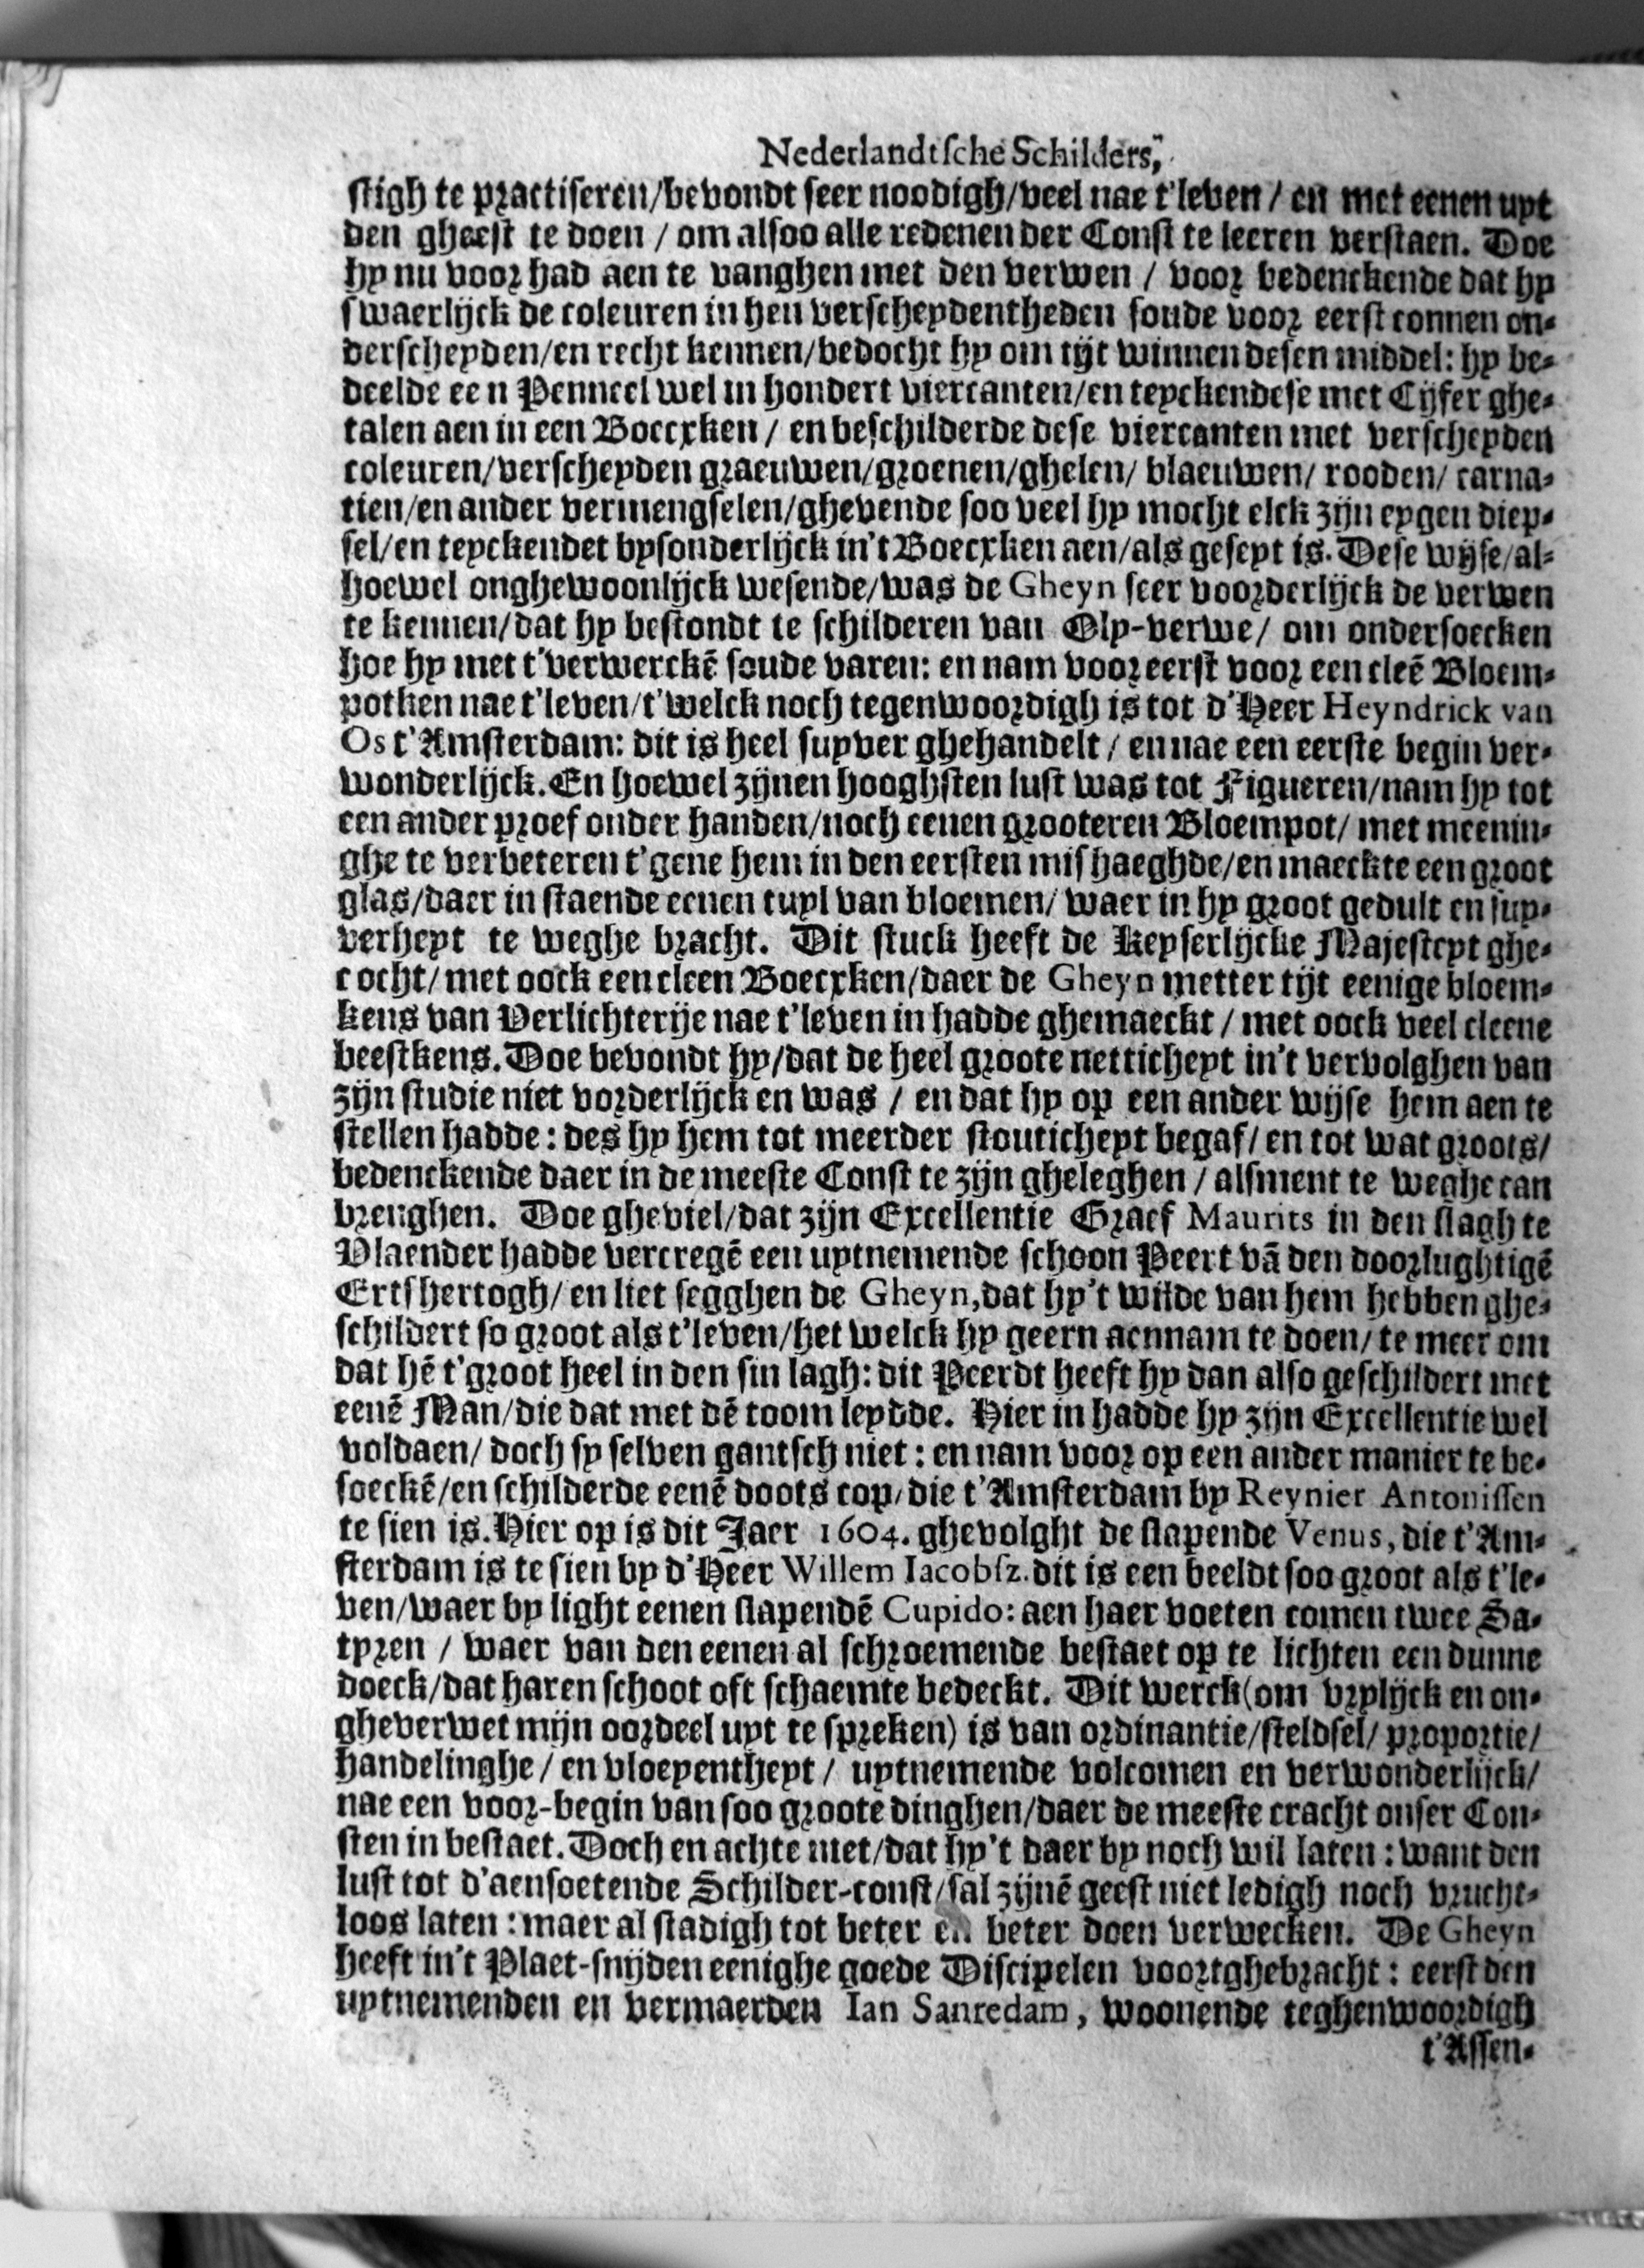 Nederlandtsche Schilders,
stigh te practiseren/bevondt seer noodigh/veel nae t'leven/ en met eenen uyt
den gheest te doen / om alsoo alle redenen der Const te leeren verstaen. Doe
hy nu voor had aen te vanghen met den verwen / voor bedenckende dat hy
swaerlijck de coleuren in hen verscheydentheden soude voor eerst connen on-
derscheyden/en recht kennen/bedocht hy om tijt winnen desen middel: hy be-
deelde een Penneel wel in hondert viercanten/en teyckendese met Cijfer ghe-
talen aen in een Boecxken / en beschilderde dese viercanten met verscheyden
coleuren/verscheyden graeuwen/groenen/ghelen/ blaeuwen/ rooden/ carna-
tien/en ander vermengselen/ghevende soo veel hy mocht elck zijn eygen diep-
sel/en teyckendet bysonderlijck in't Boecxken aen/als geseyt is. Dese wijse/al-
hoewel onghewoonlijck wesende/was de Gheyn seer voorderlijck de verwen
te kennen/dat hy bestondt te schilderen van Oly-verwe/ om ondersoecken
hoe hy met t'verwerckē soude varen: en nam voor eerst voor een cleē Bloem-
potken nae t'leven/t'welck noch tegenwoordigh is tot d'Heer Heyndrick van
Os t'Amsterdam: dit is heel suyver ghehandelt / en nae een eerste begin ver-
wonderlijck. En hoewel zijnen hooghsten lust was tot Figueren/nam hy tot
een ander proef onder handen/noch eenen grooteren Bloempot/ met meenin-
ghe te verbeteren t'gene hem in den eersten mishaeghde/en maeckte een groot
glas/daer in staende eenen tuyl van bloemen/ waer in hy groot gedult en suy-
verheyt te weghe bracht. Dit stuck heeft de Keyserlijcke Majesteyt ghe-
cocht/ met oock een cleen Boecxken/daer de Gheyn metter tijt eenige bloem-
kens van Verlichterije nae t'leven in hadde ghemaeckt / met oock veel cleene
beestkens. Doe bevondt hy/dat de heel groote netticheyt in't vervolghen van
zijn studie niet vorderlijck en was / en dat hy op een ander wijse hem aen te
stellen hadde: des hy hem tot meerder stouticheyt begaf/ en tot wat groots/
bedenckende daer in de meeste Const te zijn gheleghen / alsment te weghe can
brenghen. Doe gheviel/dat zijn Excellentie Graef Maurits in den slagh te
Vlaender hadde vercregē een uytnemende schoon Peert vā den doorlughtigē
Ertshertogh/ en liet segghen de Gheyn, dat hy't wilde van hem hebben ghe-
schildert so groot als t'leven/het welck hy geern aennam te doen/ te meer om
dat hē t'groot heel in den sin lagh: dit Peerdt heeft hy dan also geschildert met
eenē Man/die dat met dē toom leydde. Hier in hadde hy zijn Excellentie wel
voldaen/ doch sy selven gantsch niet: en nam voor op een ander manier te be-
soeckē/en schilderde eenē doots cop/die t'Amsterdam by Reynier Antonissen
te sien is. Hier op is dit Jaer 1604. ghevolght de slapende Venus, die t'Am-
sterdam is te sien by d'Heer Willem Iacobsz. dit is een beeldt soo groot als t'le-
ven/waer by light eenen slapendē Cupido: aen haer voeten comen twee Sa-
tyren / waer van den eenen al schroemende bestaet op te lichten een dunne
doeck/dat haren schoot oft schaemte bedeckt. Dit werck (om vrylijck en on-
gheverwet mijn oordeel uyt te spreken) is van ordinantie/steldsel/ proportie/
handelinghe / en vloeyentheyt / uytnemende volcomen en verwonderlijck/
nae een voor-begin van soo groote dinghen/daer de meeste cracht onser Con-
sten in bestaet. Doch en achte niet/dat hy't daer by noch wil laten: want den
lust tot d'aensoetende Schilder-const/sal zijnē geest niet ledigh noch vrucht-
loos laten: maer al stadigh tot beter en beter doen verwecken. De Gheyn
heeft in't Plaet-snijden eenighe goede Discipelen voortghebracht: eerst den
uytnemenden en vermaerden Ian Sanredam, woonende teghenwoordigh
t'Assen-